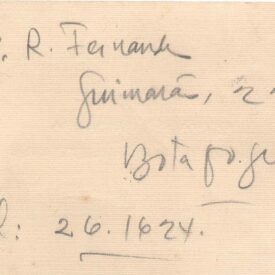 R. Fernand
Guimarã, 2
Botafogo
l: 26.1624.